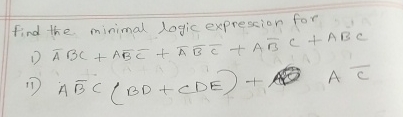 find the minimal logic expression for
i) A̅BC + AB̅C̅ + A̅B̅C̅ + AB̅C + ABC
ii) AB̅C (BD + CDE) + AC̅